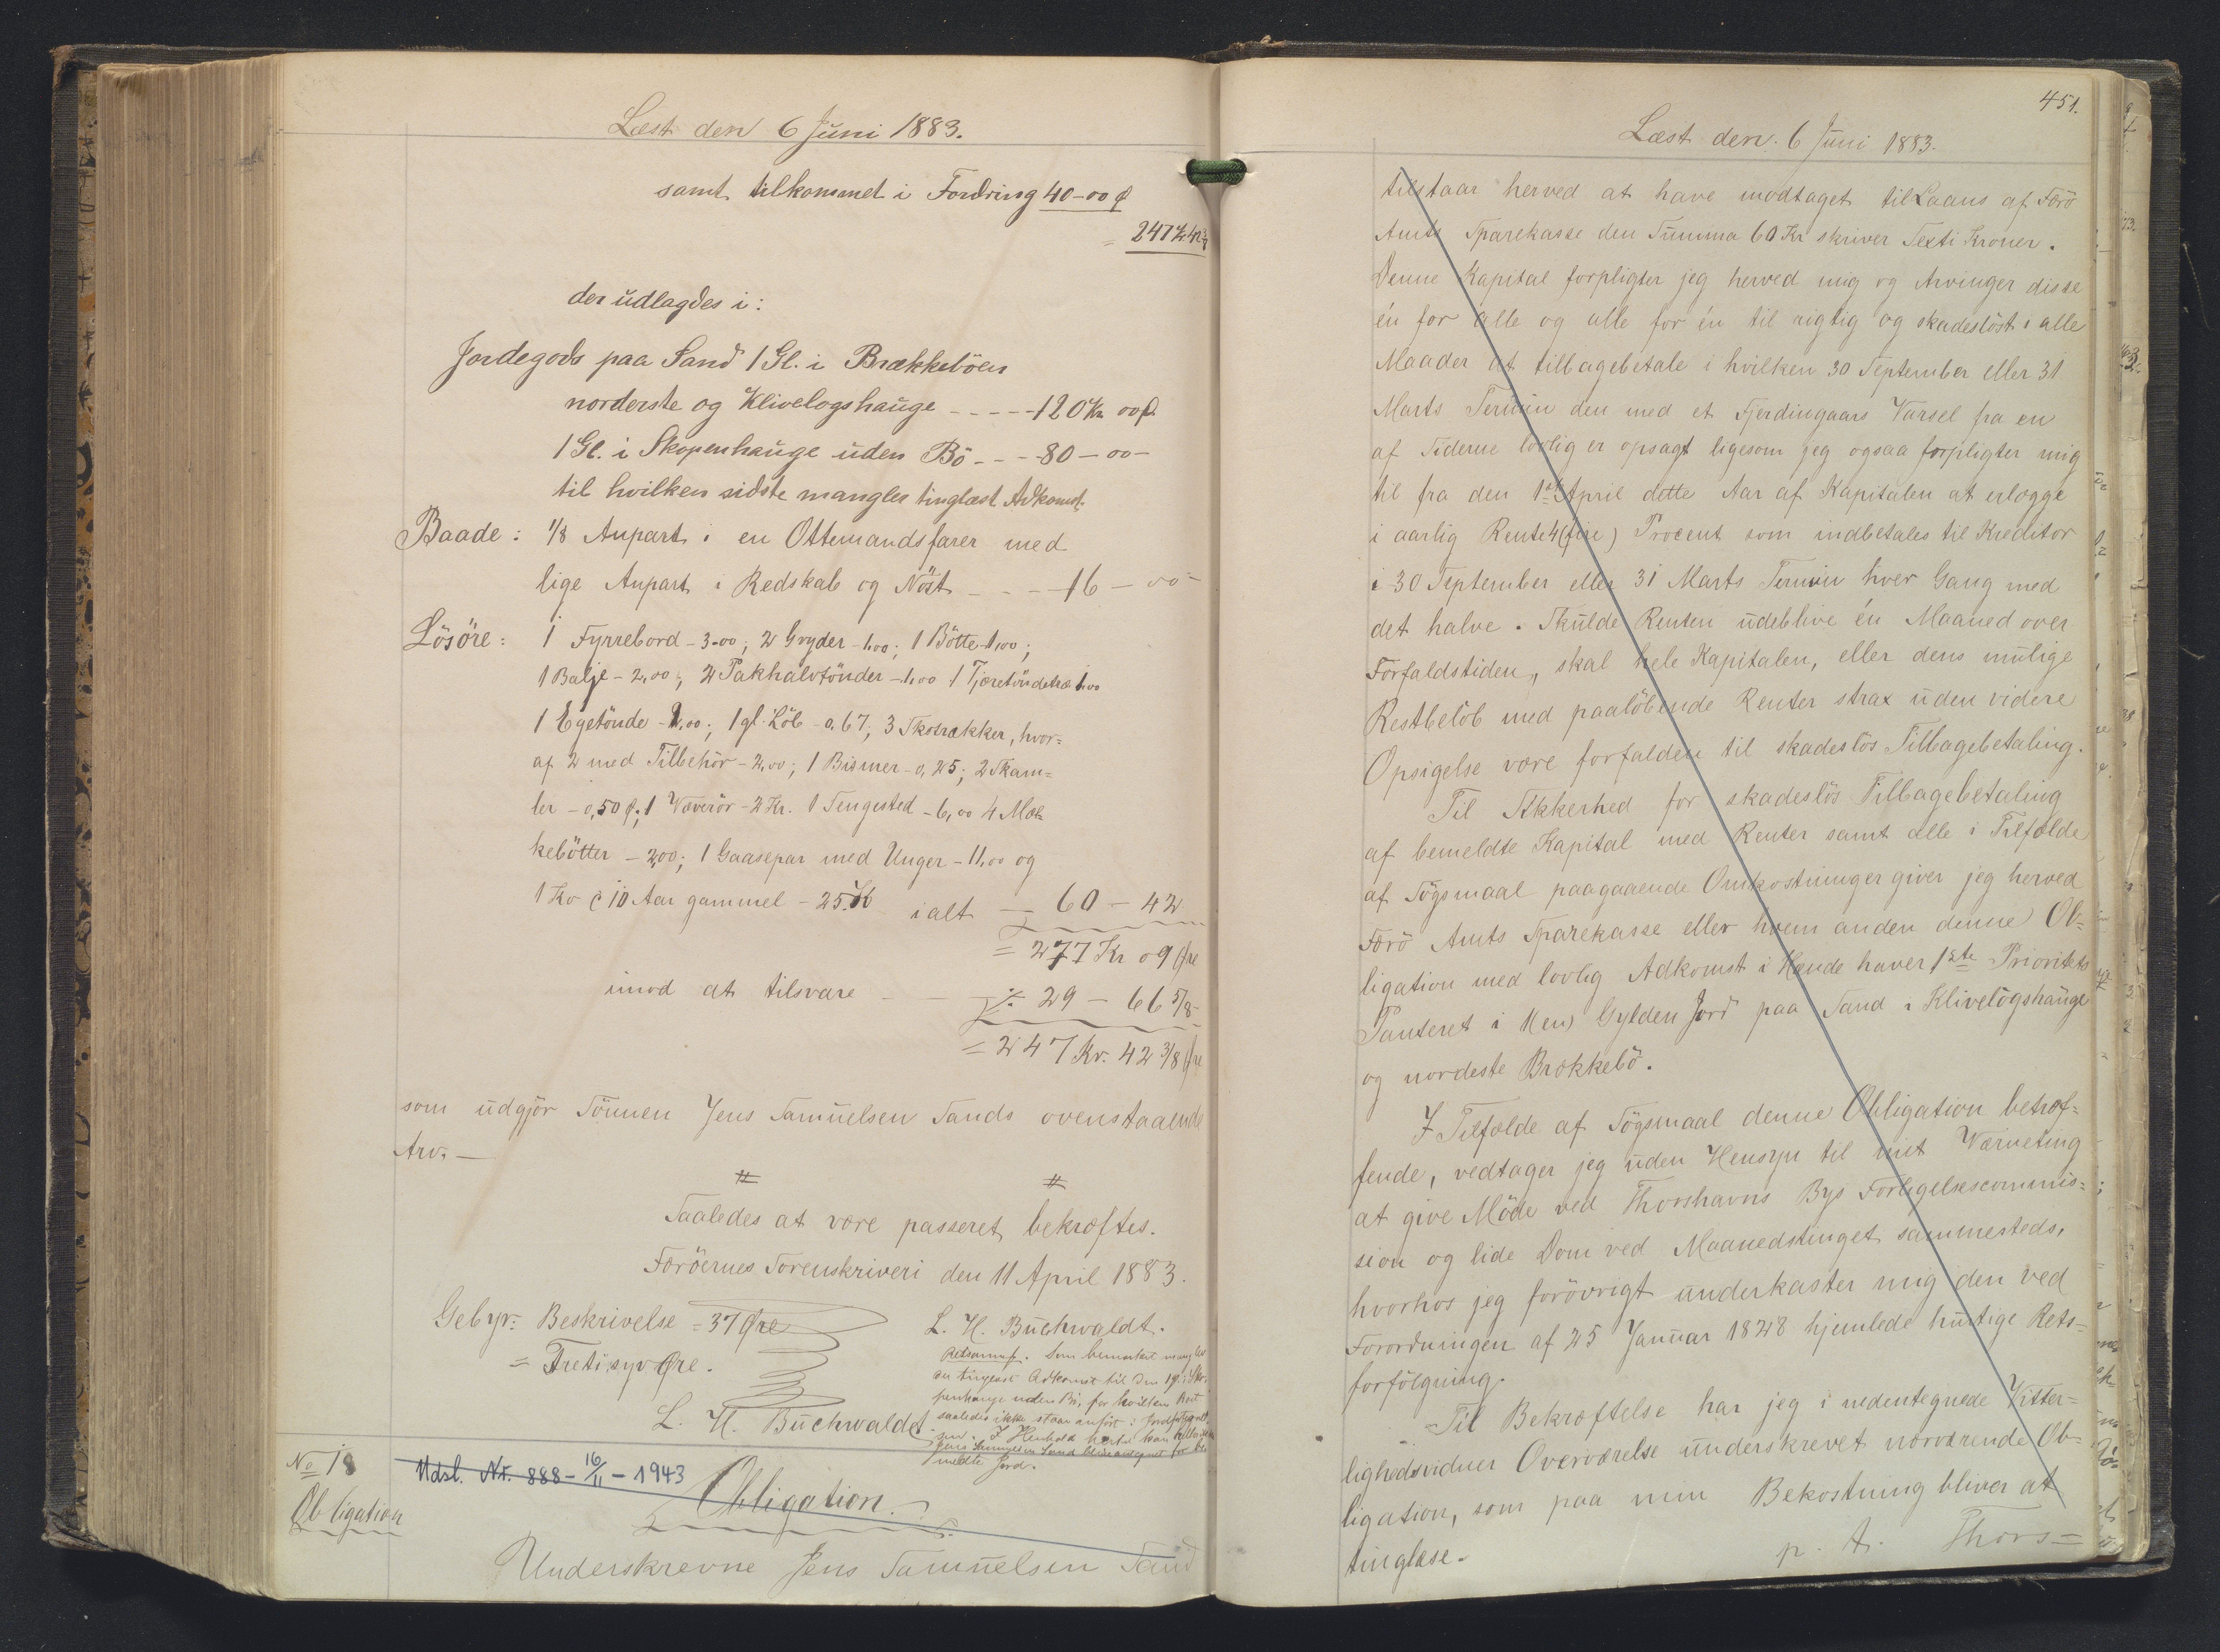 Læst den 6 Juni 1883.
samt tilkommet i Fordring 40-00 ø
= 247 Kr 42 3/8
der udlagdes i:
Jordegods paa Sand 1 Gl. i Brækkeböen
norderste og Klivelogshauge - - - - - 120 Kr 00 ø
1 Gl. i Skopenhauge uden Bö - - - 80 - 00 -
til hvilken sidste mangler tinglæst Adkomst.
Baade: 1/8 Anpart i en Ottemandsfarer med
lige Anpart i Redskab og Nöst - - - - 16 - 00 -
Lösöre: 1 Fyrrebord - 3-00; 2 Gryder - 1.00; 1 Bötte - 1,00;
1 Balje - 2,00; 2 Pakhalvtönder - 1,00 1 Tjæretöndetræ 1.00
1 Egetönde - 2,00; 1 gl. Löb - 0.67; 3 Skotrækker, hvor=
af 2 med Tilbehör - 2,00; 1 Bismer - 0,25; 2 Skam=
ler - 0,50 ø; 1 Væverör - 2 Kr. 1 Sengested - 6,00 4 Mæl=
kebötter - 2,00; 1 Gaasepar med Unger - 11,00 og
1 Ko c 10 Aar gammel - 25 Kr ialt - 60 - 42
= 277 Kr 09 Øre
imod at tilsvare - - ÷ 29 - 66 5/8 -
= 247 Kr. 42 3/8 Øre
som udgjör Sönnen Jens Samuelsen Sands ovenstaaende
Arv. -
Saaledes at være passeret bekræftes.
Færöernes Sorenskriveri den 11 April 1883.
Gebyr: Beskrivelse = 37 Øre
= Tretisyv Øre.
L. H. Buchwaldt.
L. H. Buchwaldt
Retsanmk. Som bemærket mangler
en tinglæst Adkomst til den 1 gl. i Sko-
penhauge uden Bö, for hvilken Part
saaledes ikke staar anfört i
I Henhold hertil kan
Jens Samuelsen Sand for be
meldte Jord.
No 18
Obligation
Udsl. Nr. 888 - 16/11 - 1943
Obligation.
Underskrevne Jens Samuelsen Sand
451.
Læst den 6 Juni 1883.
tilstaar herved at have modtaget til Laans af Færö
Amts Sparekasse den Summa 60 Kr skriver Sexti Kroner.
Denne Kapital forpligter jeg herved mig og Arvinger disse
én for alle og alle for én til rigtig og skadeslöst i alle
Maader at tilbagebetale i hvilken 30 September eller 31
Marts Termin den med et Fjerdingaars Varsel fra en
af Siderne lovlig er opsagt ligesom jeg ogsaa forpligter mig
til fra den 1ste April dette Aar af Kapitalen at erlægge
i aarlig Rente 4 (fire) Procent som indbetales til Kreditor
i 30 September eller 31 Marts Termin hver Gang med
det halve. Skulde Renten udeblive én Maaned over
Forfaldstiden, skal hele Kapitalen, eller dens mulige
Restbelöb med paalöbende Renter strax uden videre
Opsigelse være forfalden til skadeslös Tilbagebetaling.
Til Sikkerhed for skadeslös Tilbagebetaling
af bemeldte Kapital med Renter samt alle i Tilfælde
af Sögsmaal paagaaende Omkostninger giver jeg herved
Færö Amts Sparekasse eller hvem anden denne Ob=
ligation med lovlig Adkomst i Hænde haver 1ste Prioritets
Panteret i Gylden Jord paa Sand i Klivelögshauge
og nordeste Brækkebö.
I Tilfælde af Sögsmaal denne Obligation betræf=
fende, vedtager jeg uden Hensyn til mit Værneting
at give Möde ved Thorshavns Bys Forligelsescommis=
sion og lide Dom ved Maanedstinget sammesteds,
hvorhos jeg forövrigt underkaster mig den ved
Forordningen af 25 Januar 1828 hjemlede hurtige Rets=
forfölgning.
Til Bekræftelse har jeg i nedentegnede Vitter=
lighedsvidner Overværelse underskrevet nærværende Ob=
ligation, som paa min Bekostning bliver at
tinglæse.
p. t. Thors=